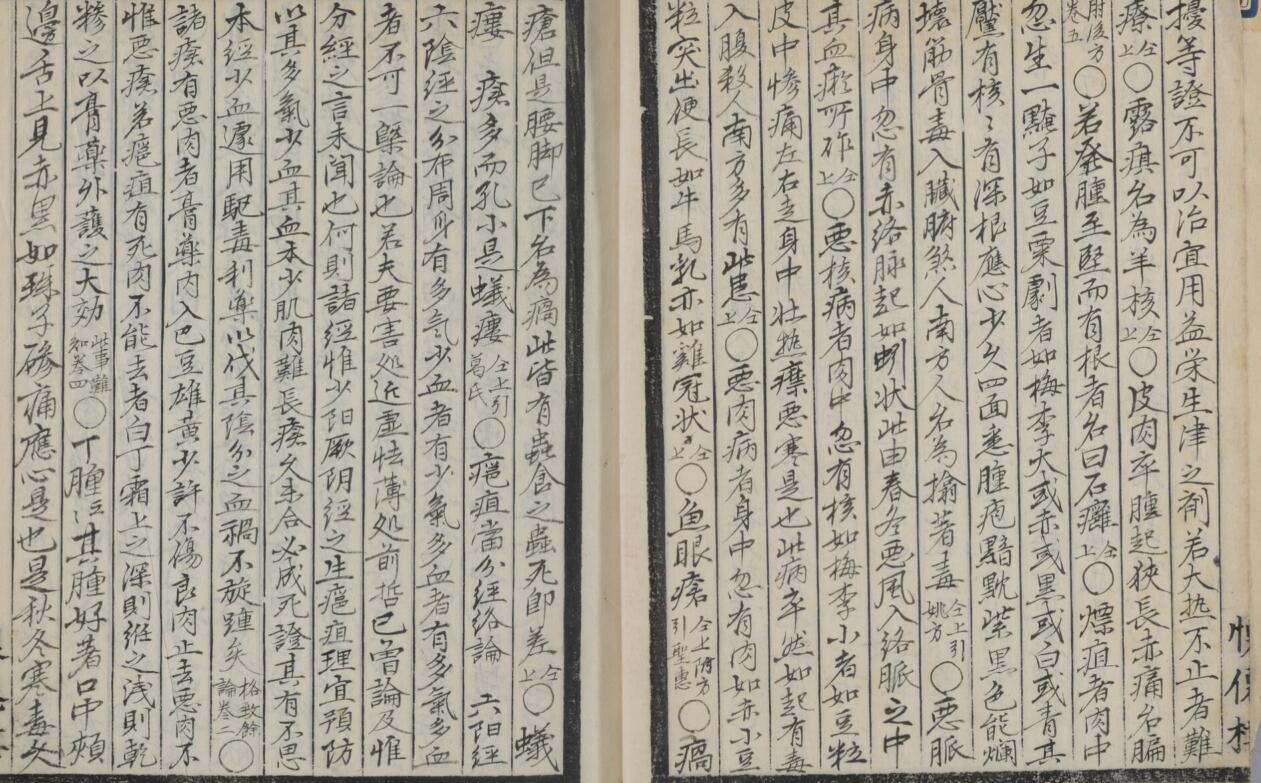 擾等證不可以治宜用益栄生津之剤若大热不止者難
療仝上○露㾵名為羊核仝上○皮肉卒腫起狹長赤痛名㿭
肘後方卷五○若發腫至堅而有根者名曰石癰仝上○熛疽者肉中
忽生一㸃子如豆粟劇者如梅李大或赤或黒或白或青其
黶有核〻有深根應心少久四面悉腫疱黯黕紫黒色能爛
壊筋骨毒入臓腑煞人南方人名為搨著毒仝上引姚方○悪脈
病身中忽有赤络脉起如蚓状此由春冬悪風入络脈之中
其血瘀所作仝上○悪核病者肉中忽有核如梅李小者如豆粒
皮中惨痛左右走身中壮热瘰悪寒是也此病卒然如起有毒
入腹殺人南方多有此患仝上○悪肉病者身中忽有肉如赤小豆
粒突出便長如牛馬乳亦如雞冠状仝上○魚眼瘡仝上附方引聖惠○瘑
瘡但是腰脚已下名為瘑此皆有蟲食之蟲死即差仝上○蟻
瘻 瘡多而孔小是蟻瘻仝上引葛氏○癰疽當分經络論 六阳經
六陰經之分布周身有多气少血者有少氣多血者有多氣多血
者不可一槩論也若夫要害処近虚怯薄処前哲已曾論及惟
分經之言未聞也何則諸經惟少阳厥阴經之生癰疽理宜預防
以其多氣少血其血本少肌肉難長瘡久未合必成死證其有不思
本經少血遽用駆毒利藥以伐其陰分之血禍不旋踵矣格致餘論卷二○
諸瘡有悪肉者膏藥内入巴豆雄黄少許不傷良肉止去悪肉不
惟悪瘡若癰疽有死肉不能去者白丁霜上之深則絍之浅則乾
糁之以膏藥外護之大効此事難知卷四○丁腫㽵其腫好著口中頰
邊舌上見赤黒如珠子磣痛應心是也是秋冬寒毒久